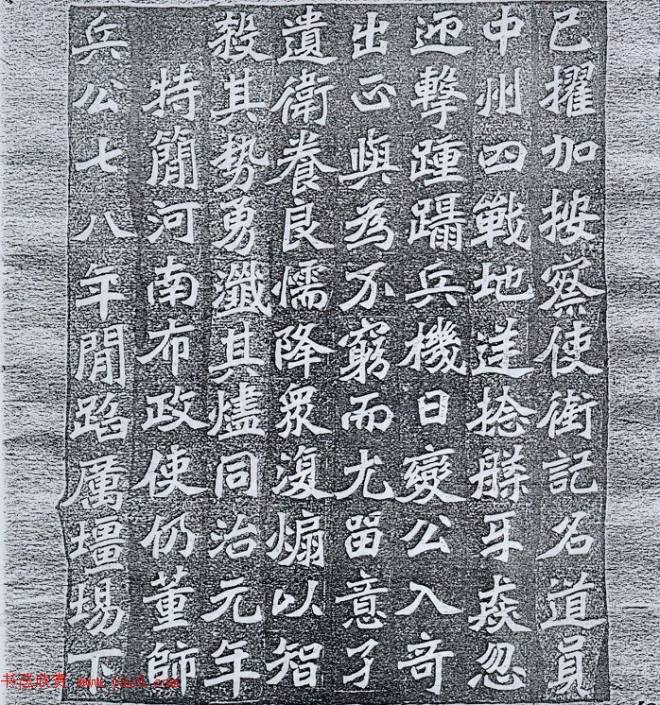 已擢加按察使銜記名道員
中州四戰地逆捻猋忽
迎擊踵躡兵機日變公入奇
出正與為不窮而尤留意孑
遺衛養良懦降眾復煽以智
殺其勢勇殲其燼同治元年
特簡河南布政使仍董師
兵公七八年間蹈厲壃埸下
书法欣赏 www.yac8.com